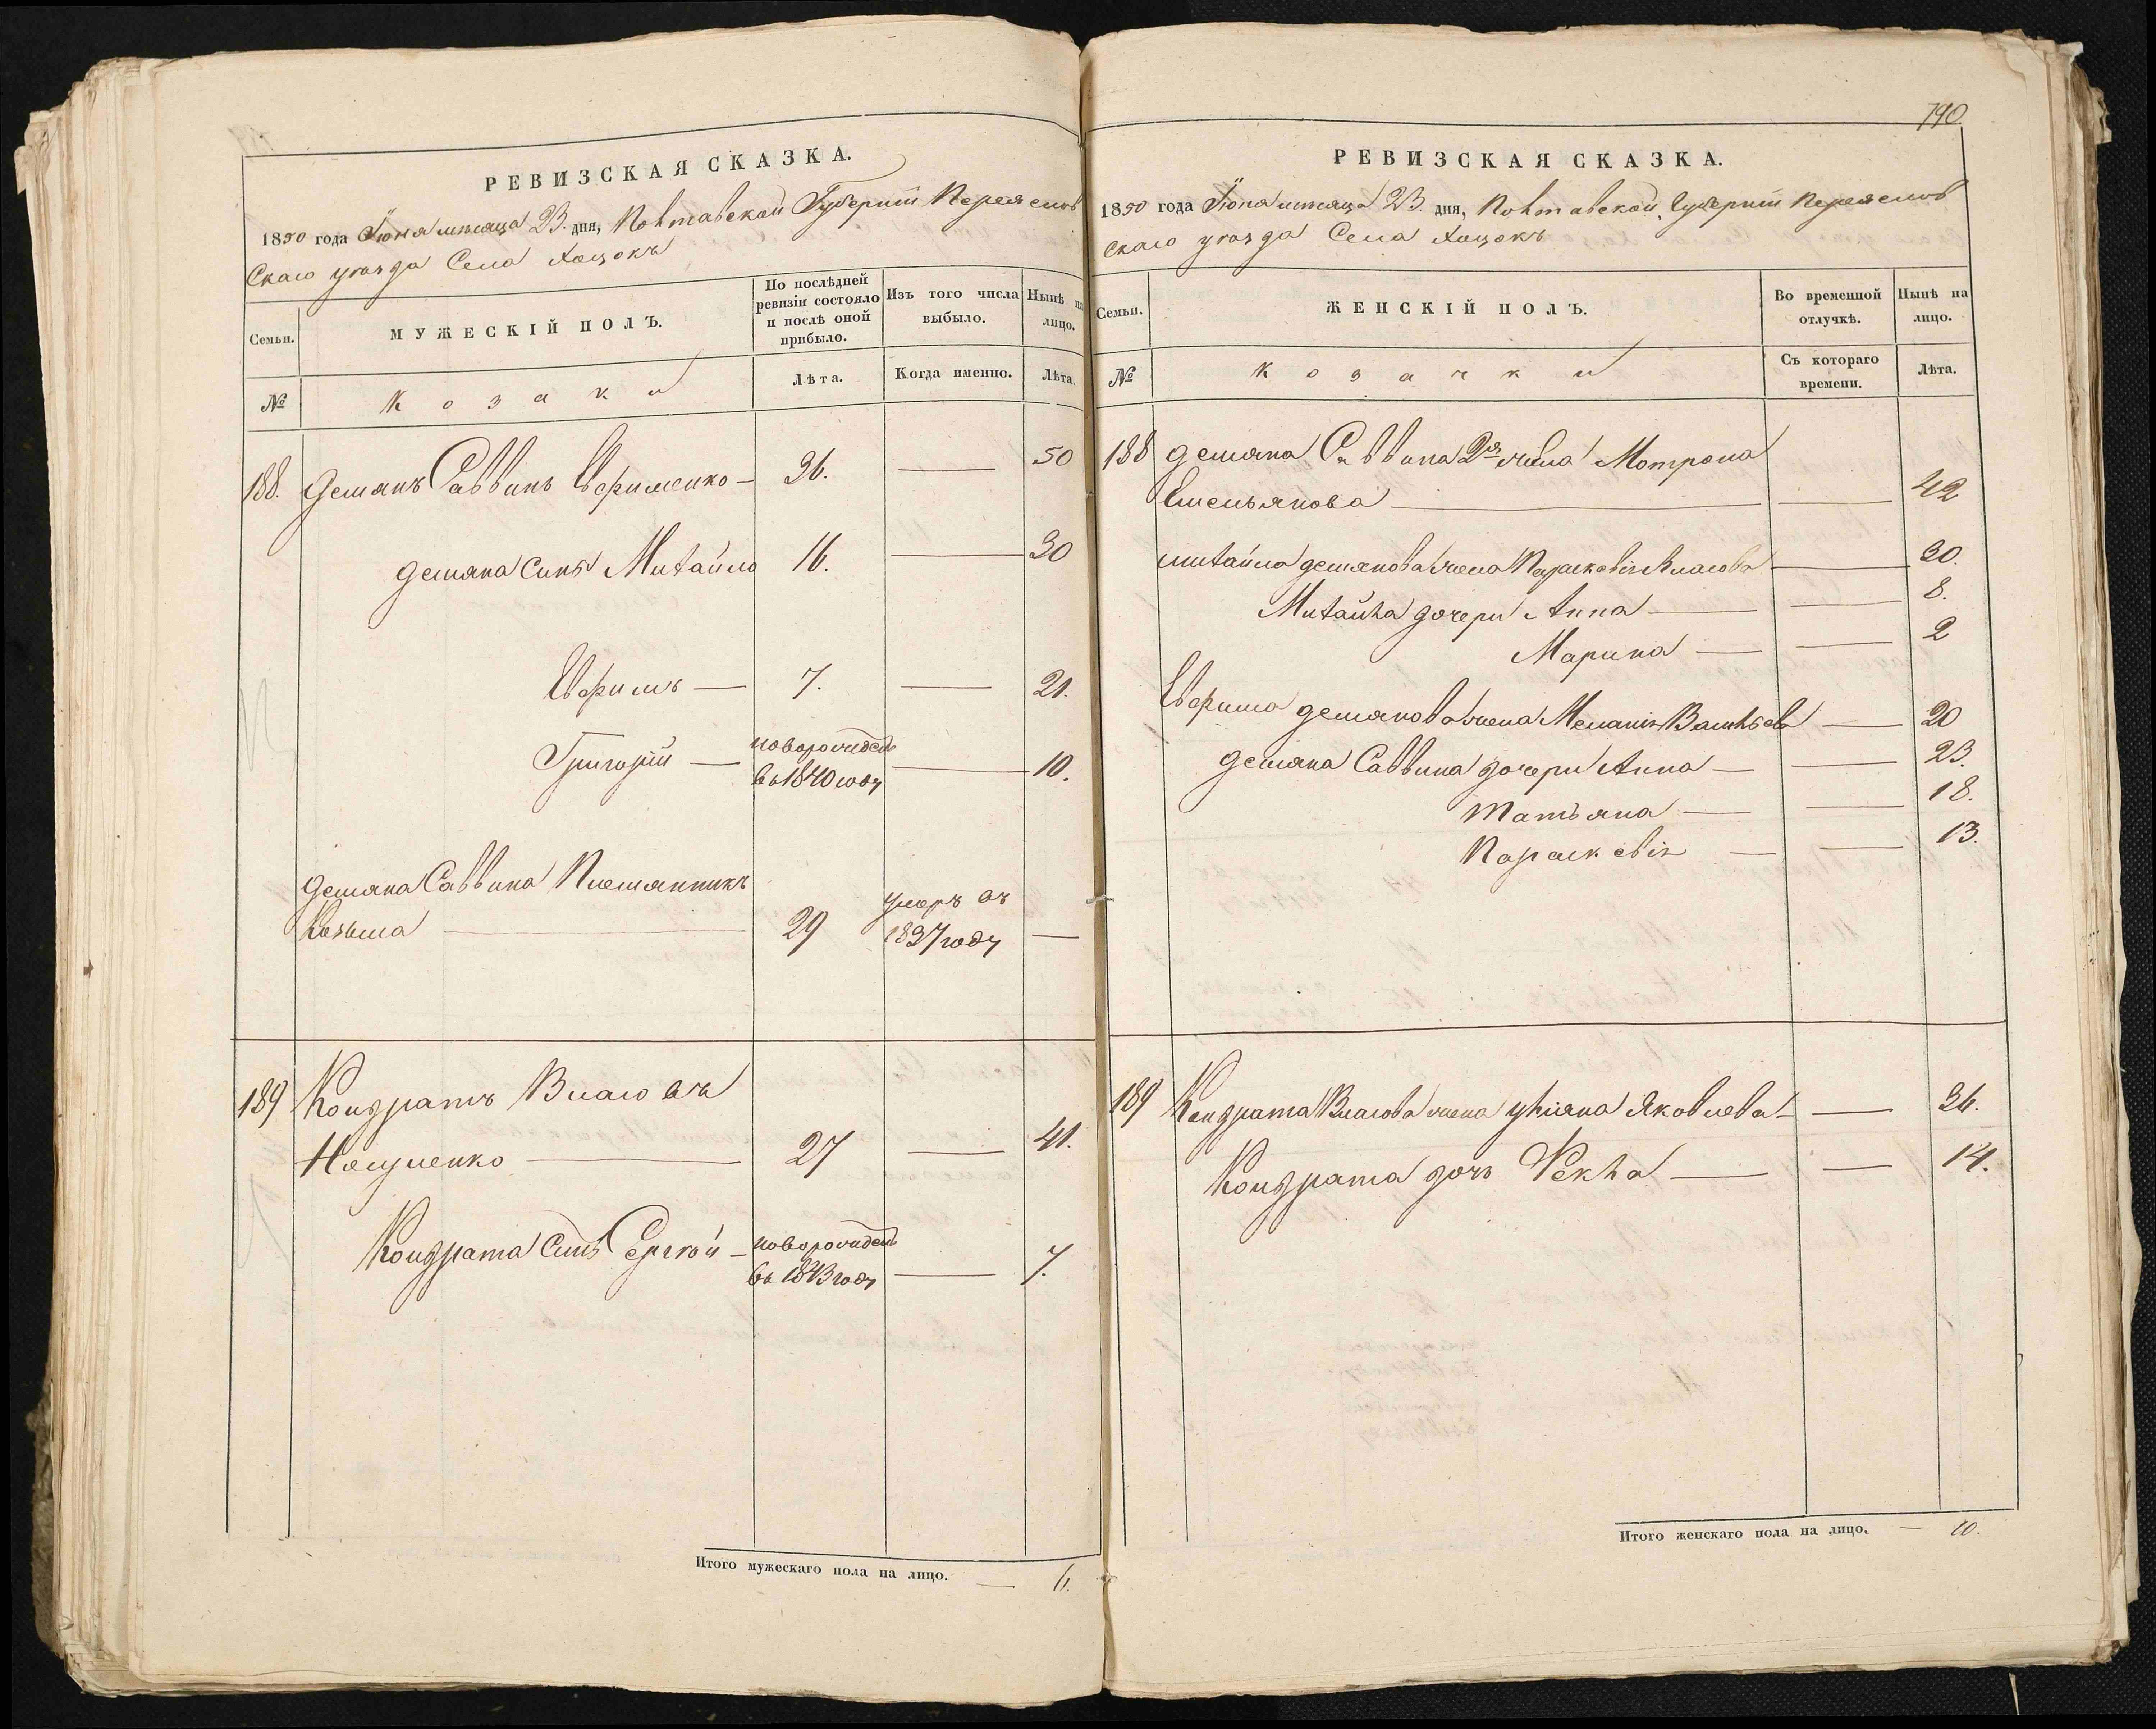 РЕВИЗСКАЯ СКАЗКА.
1850 года Іюня мѣсяца 23. дня, Полтавской Губерніи Переяслов
скаго уѣзда Села Хоцокъ
Семьи.
МУЖЕСКІЙ ПОЛЪ.
По послѣдней
ревизіи состояло
и послѣ оной
прибыло.
Изъ того числа
выбыло.
Нынѣ на
лицо.
№
Козаки
Лѣта.
Когда именно.
Лѣта.
188. Демянъ Саввинъ Ефименко — 36. — 50
Демяна сынъ Михайло 16. — 30
Ефимъ — 7. — 21.
Григорій — новорожденъ
въ 1840 году — 10.
Демяна Саввина Племянникъ
Козьма — 29 умеръ въ
1837 году —
189 Кондратъ Власовъ
27 — 41.
Кондрата сынъ Сергѣй — новорожденъ
въ 1843 году — 7.
Итого мужескаго пола на лицо. — 6.
790
РЕВИЗСКАЯ СКАЗКА.
1850 года Іюня мѣсяца 23. дня, Полтавской Губерніи Переяслов
скаго уѣзда Села Хоцокъ
Семьи.
ЖЕНСКІЙ ПОЛЪ.
Во временной
отлучкѣ.
Нынѣ на
лицо.
№
Козачки
Съ котораго
времени.
Лѣта.
188 Демяна Саввина 2я жена Мотрона
Емельянова — — 42
Михайла Демянова жена Параскевія Власова — 30.
Михайла дочери Анна — — 8.
Марина — — 2
Ефима Демянова жена Меланія — 20
Демяна Саввина дочери Анна — — 23.
Татьяна — — 18.
Параскевія — — 13.
189 Кондрата Власова жена Уліяна Яковлева — — 36.
Кондрата дочь Фекла — — 14.
Итого женскаго пола на лицо. — 10.